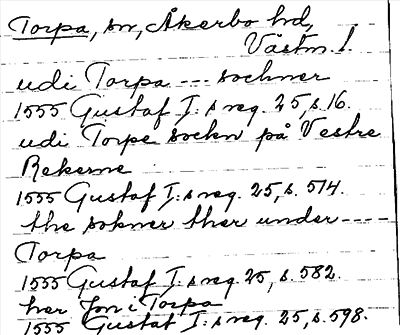 Torpa, sn, Åkerbo hd,
Västm. l.
udi Torpa --- sochner
1555 Gustaf I:s reg. 25, s. 16.
udi Torpe sockn på Vestre
Rekerne
1555 Gustaf I:s reg. 25, s. 574.
the sokner ther under ----
Torpa
1555 Gustaf I:s reg. 25, s. 582.
her Jon i Torpa
1555 Gustaf I:s reg. 25, s. 598.